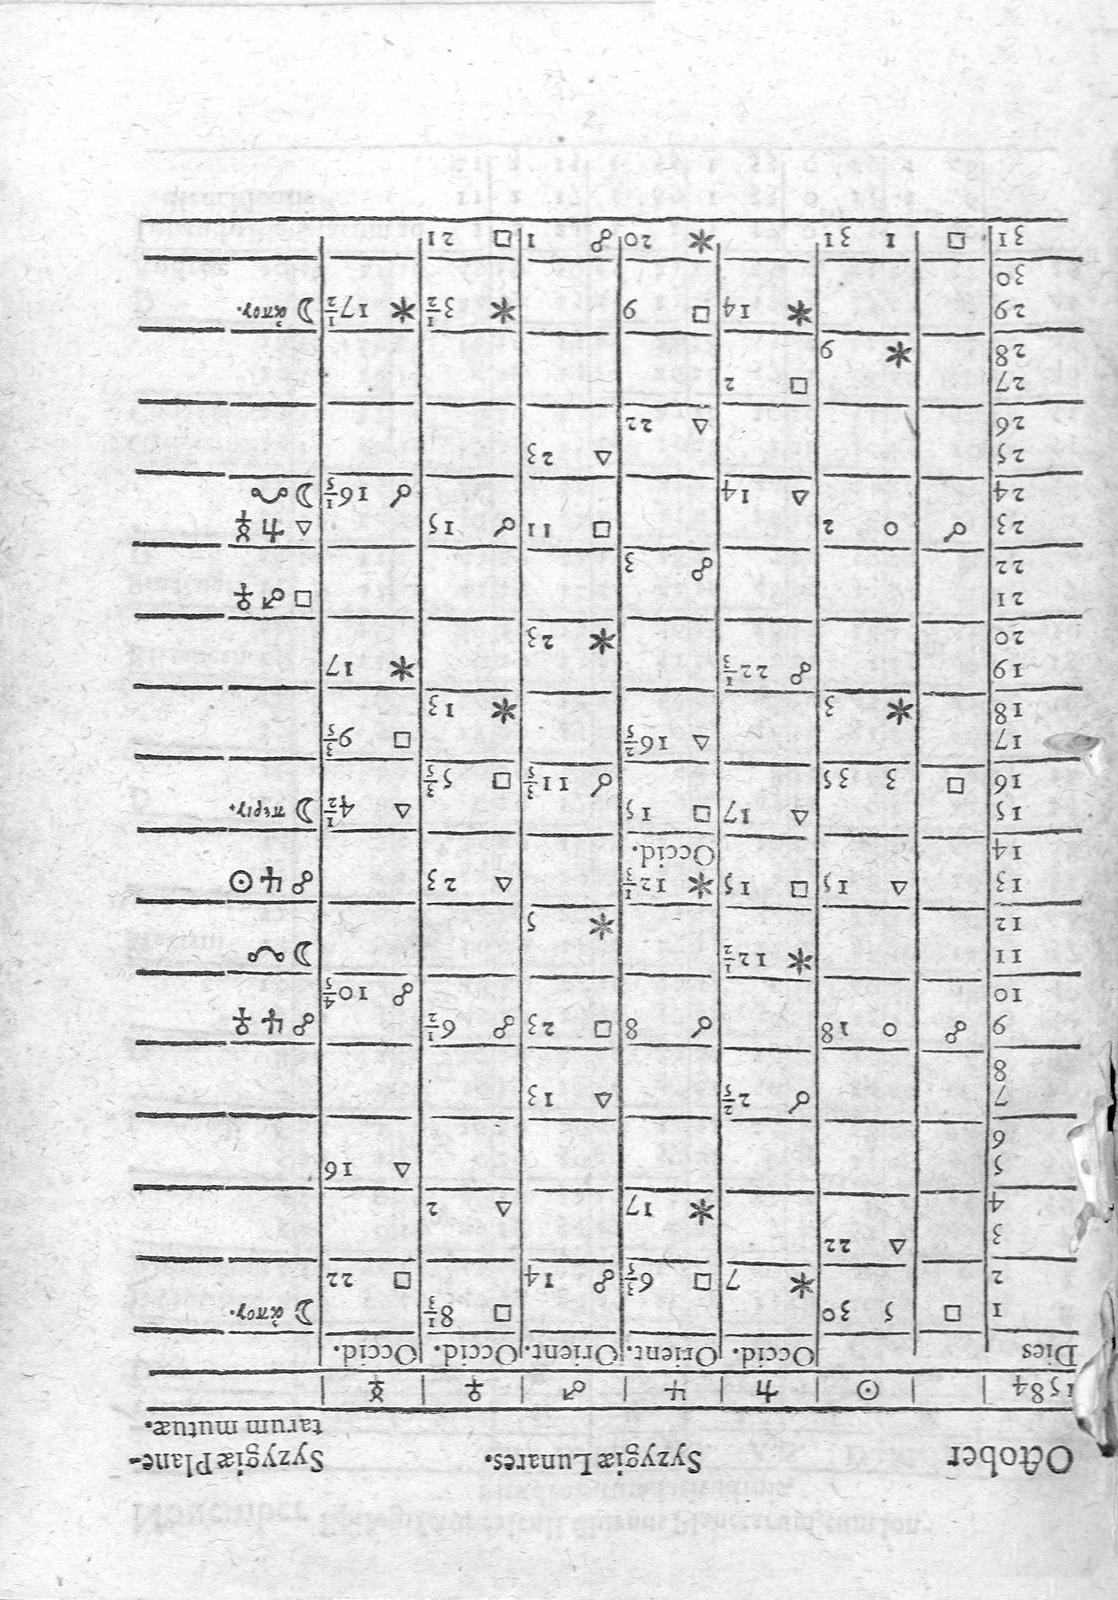 October Syzygiæ Lunares. Syzygiæ Plane-
tarum mutuæ.
1584 ☉ ♄ ♃ ♂ ♀ ☿
Dies Occid. Orient. Orient. Occid. Occid.
1 □ 5 30 □ 8⅓ ☽ ἀπογ.
2 ✶ 7 □ 6⅗ ☍ 14 □ 22
3 △ 22
4 ✶ 17 △ 2
5 △ 16
6
7 ☌ 2⅖ △ 13
8
9 ☍ 0 18 ☌ 8 □ 23 ☍ 6½ ☍ ♃ ♀
10 ☍ 10⅘
11 ✶ 12½ ☽
12 ✶ 5
13 △ 15 □ 15 ✶ 12⅓ △ 23 ☍ ♃ ☉
14 Occid.
15 △ 17 □ 15 △ 4½ ☽ περιγ.
16 □ 3 35 ☌ 11⅗ □ 5⅗
17 △ 16⅖ □ 9⅗
18 ✶ 3 ✶ 13
19 ☍ 22⅓ ✶ 17
20 ✶ 23
21 □ ♂ ♀
22 ☍ 3
23 ☌ 0 2 □ 11 ☌ 15 △ ♄ ☿
24 △ 14 ☌ 16⅕ ☽
25 △ 23
26 △ 22
27 □ 2
28 ✶ 9
29 ✶ 14 □ 9 ✶ 3½ ✶ 17½ ☽ ἀπογ.
30
31 □ 1 31 ✶ 20 ☍ 1 □ 21